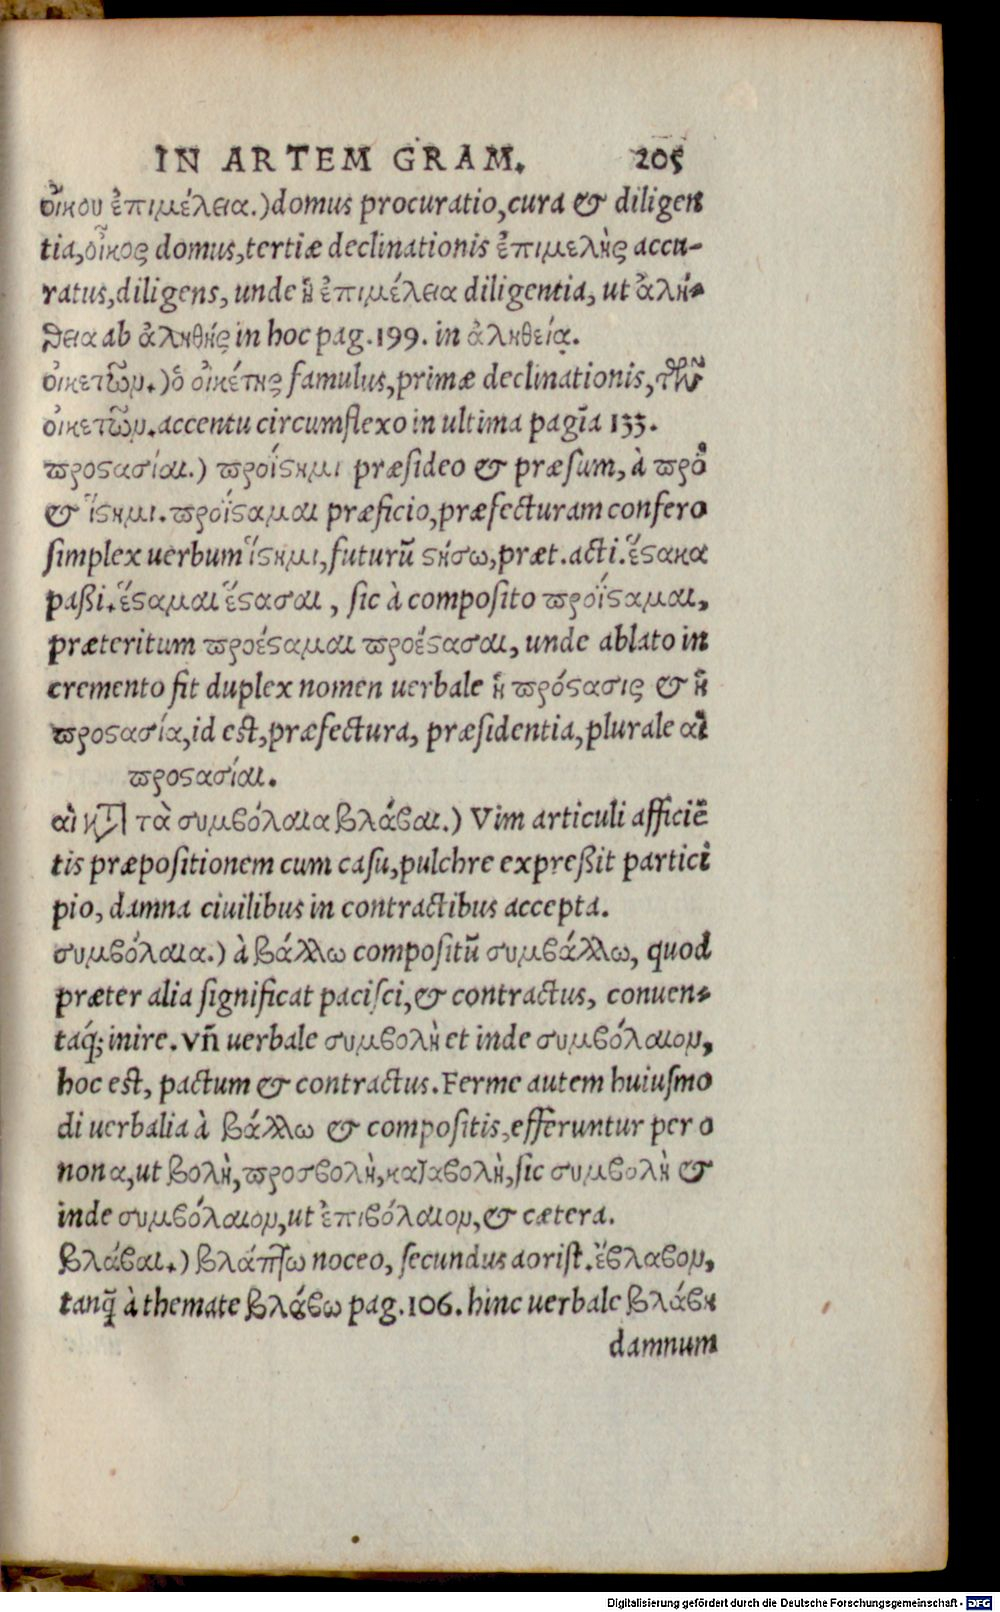 IN ARTEM GRAM. 205
οἴκου ἐπιμέλεια.) domus procuratio, cura & diligen
tia, οἶκος domus, tertiæ declinationis ἐπιμελὴς accu-
ratus, diligens, unde ἡ ἐπιμέλεια diligentia, ut ἀλή-
θεια ab ἀληθής in hoc pag. 199. in ἀληθείᾳ.
οἰκετῶν.) ὁ οἰκέτης famulus, primæ declinationis, τῶν
οἰκετῶν. accentu circumflexo in ultima pagīa 133.
προϛασίαι.) προΐϛημι præsideo & præsum, à πρὸ
& ἵϛημι. προΐϛαμαι præficio, præfecturam confero
simplex uerbum ἵϛημι, futurū ϛήσω, præt. acti. ἕϛακα
paßi. ἕϛαμαι ἕϛασαι, sic à composito προΐϛαμαι,
præteritum προέϛαμαι προέϛασαι, unde ablato in
cremento fit duplex nomen uerbale ἡ πρόϛασις & ἡ
προϛασία, id est, præfectura, præsidentia, plurale αἱ
προϛασίαι.
αἱ κατὰ τὰ συμβόλαια βλάβαι.) Vim articuli afficiē
tis præpositionem cum casu, pulchre expreßit partici
pio, damna ciuilibus in contractibus accepta.
συμβόλαια.) à βάλλω compositū συμβάλλω, quod
præter alia significat pacisci, & contractus, conuen-
taq́; inire. vñ uerbale συμβολὴ et inde συμβόλαιον,
hoc est, pactum & contractus. Ferme autem huiusmo
di uerbalia à βάλλω & compositis, efferuntur per o
non α, ut βολὴ, προσβολὴ, καταβολὴ, sic συμβολὴ &
inde συμβόλαιον, ut ἐπιβόλαιον, & cætera.
βλάβαι.) βλάπτω noceo, secundus aorist. ἔβλαβον,
tanq̄ à themate βλάβω pag. 106. hinc uerbale βλάβη
damnum
Digitalisierung gefördert durch die Deutsche Forschungsgemeinschaft - DFG